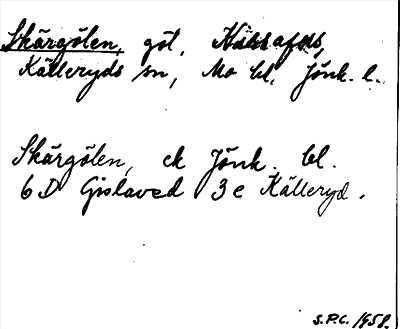 Skärgölen, göl, Hässafus,
Källeryds sn, Mo hd, Jönk. l.
Skärgölen, ek Jönk. bl.
6D Gislaved 3e Källeryd.
S.P.C. 1958.